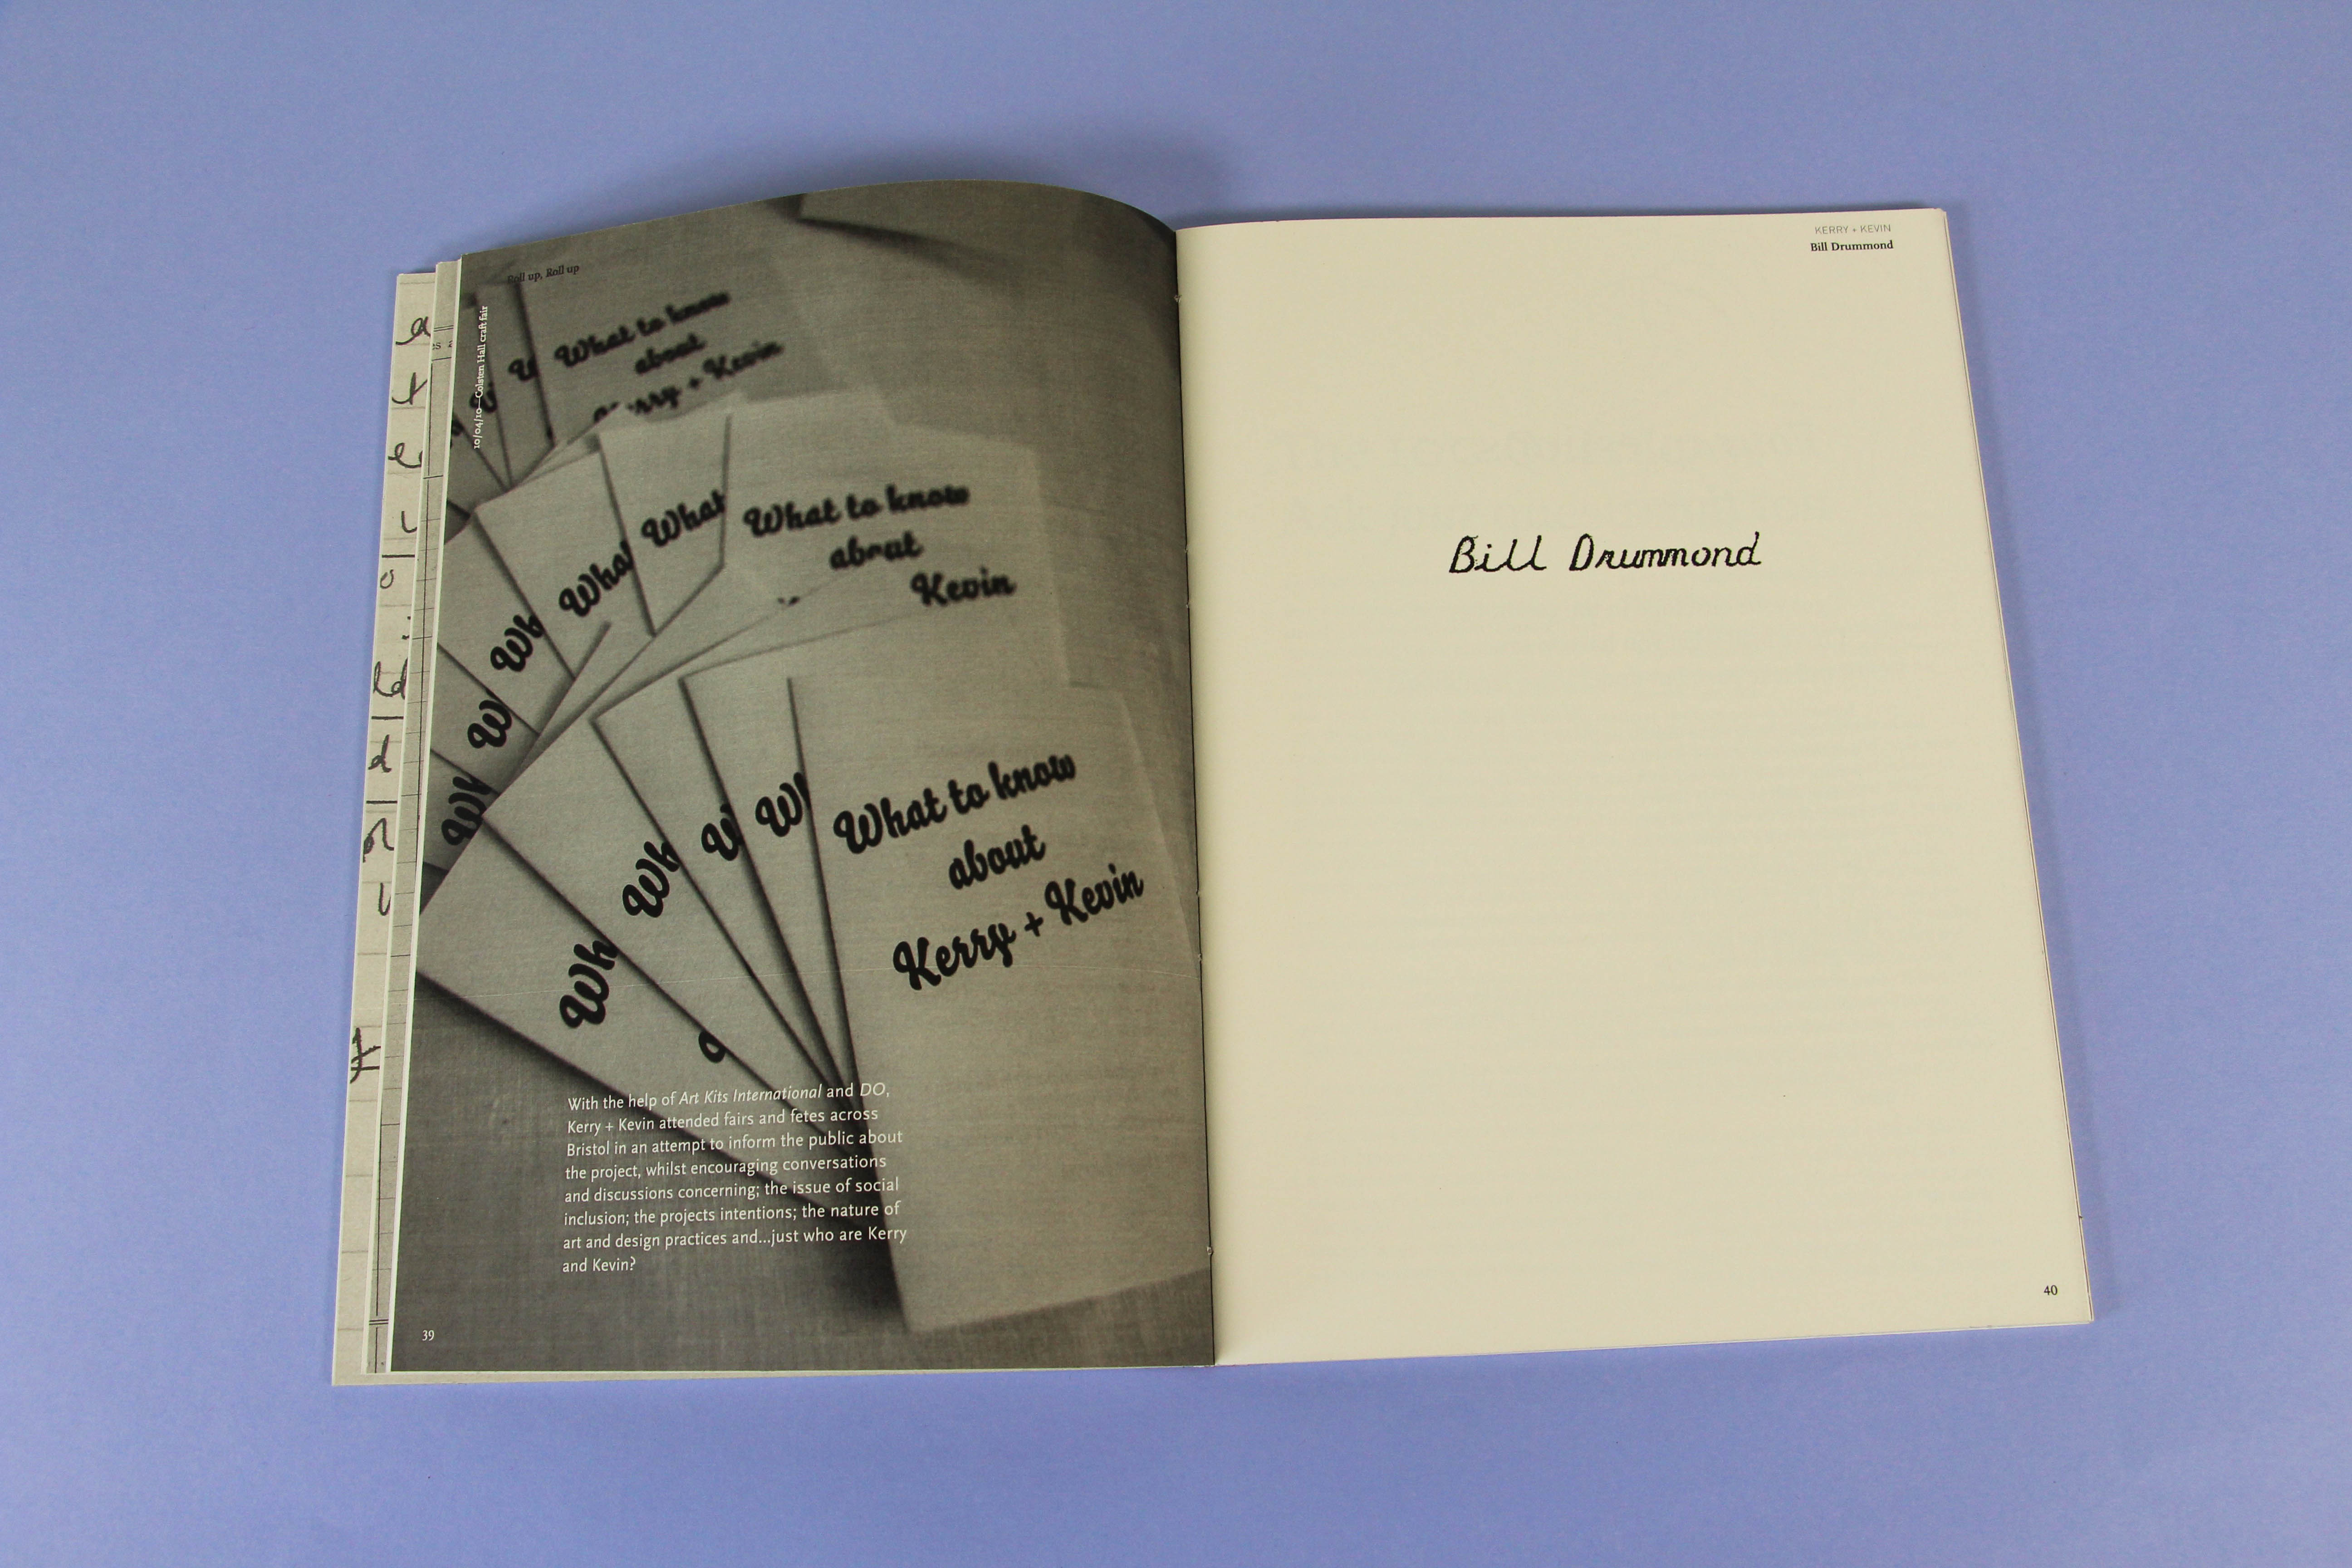 Roll up, Roll up
10/04/10—Colsten Hall craft fair
What to know
about
Kerry + Kevin
What
What to know
about
Kevin
What
Wh
W
Wh
Wh
Wh
W
Wh
What to know
about
Kerry + Kevin
With the help of Art Kits International and DO,
Kerry + Kevin attended fairs and fetes across
Bristol in an attempt to inform the public about
the project, whilst encouraging conversations
and discussions concerning; the issue of social
inclusion; the projects intentions; the nature of
art and design practices and...just who are Kerry
and Kevin?
39
KERRY + KEVIN
Bill Drummond
Bill Drummond
40